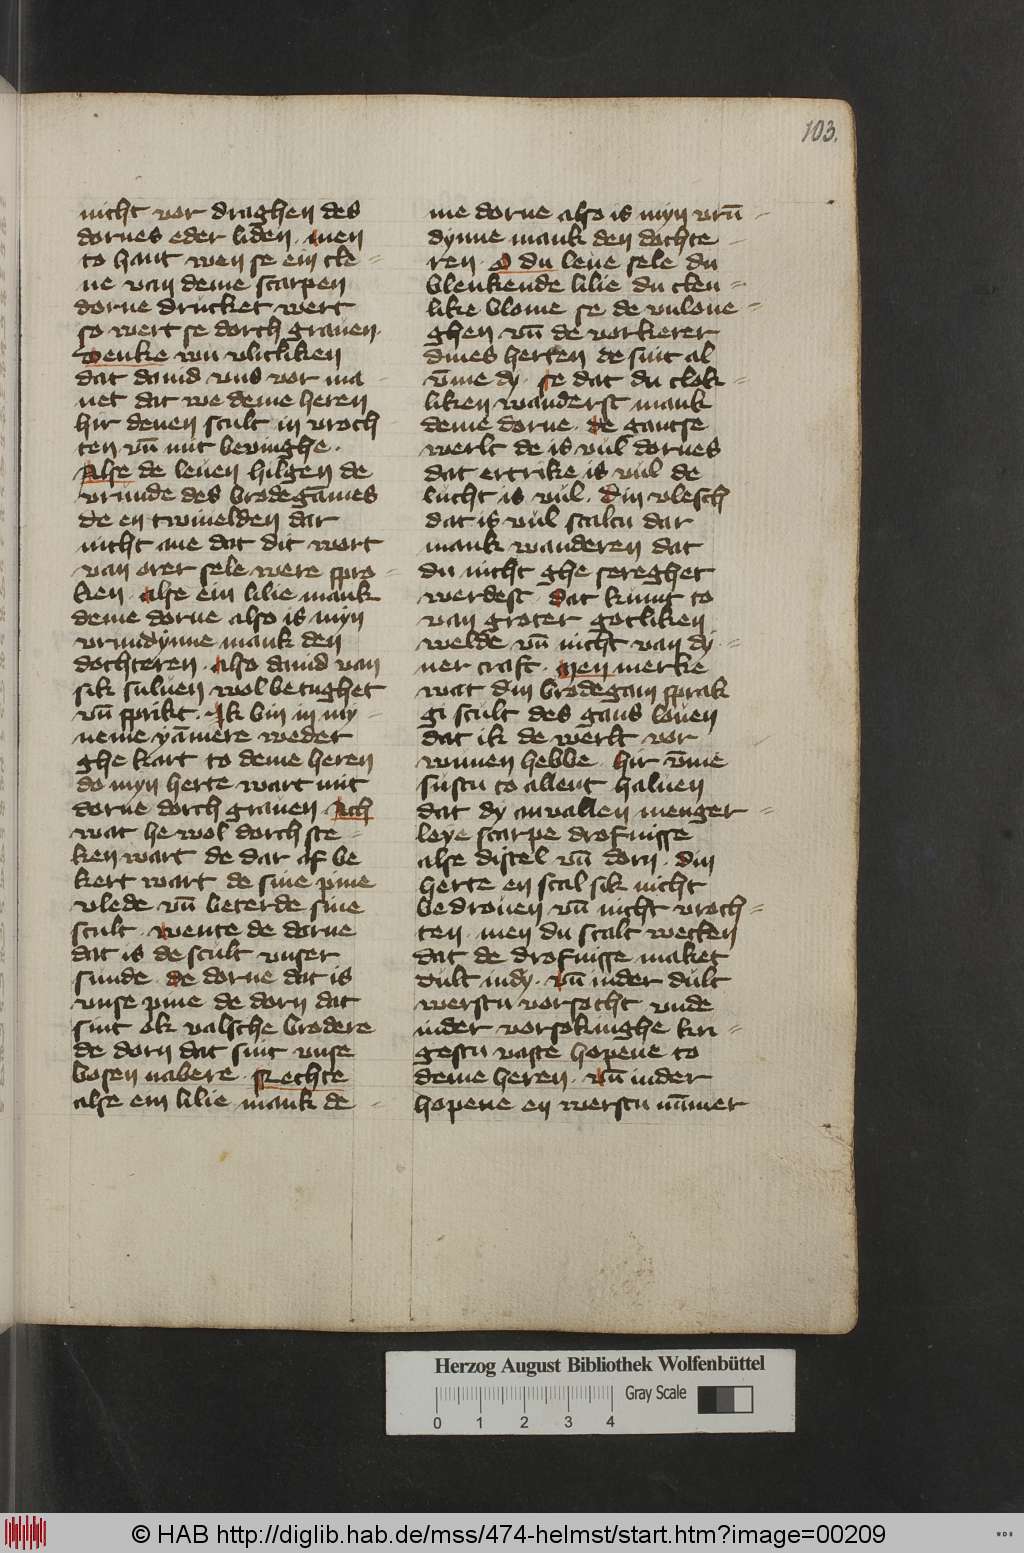 103.
nicht vor draghen des
dornes eder liden · men
to hant wen se ein cle =
ne van deme scarpen
dorne drucket wert
so wert se dorch grauen ·
denke wu vlitliken
dat dauid vns vor ma -
net dat we deme heren
hir denen scult in vroch
ten vn̄ mit beuinghe ·
Alse de leuen hilgen de
vrunde des brodegāmes
de en twiuelden dar
nicht ane dat dit wort
van orer sele were spro =
ken · alse ein lilie mank
deme dorne also is myn
vrundynne mank den
dochteren · also dauid van
sik suluen wol betughet
vn̄ sprikt · Ik bin in my =
neme yāmere weder
ghe kart to deme heren
do myn herte wart mit
dorne dorch grauen · Ach
wat he wol dorch ste =
ken wart de dar af be
kert wart de sine pine
vlede vn̄ beterde sine
scult · wente de dorne
dat is de scult vnser
sunde · de dorne dat is
vnse pine de dorn dat
sint ok valsche brodere
de dorn dat sint vnse
bosen nabere · Rechte
alse ein lilie mank de =
me dorne also is myn vrū =
dynne mank den dochte -
ren · O du leue sele du
blenkende lilie du clen =
like blome se de vnloue =
ghen vn̄ de vorkerer
dines herten de sint al
v̄me dy · se dat du clok =
liken wanderst mank
deme dorne · de gantse
werlt de is vul dornes
dat ertrike is vul de
lucht is vul · din vlesch
dat is vul scaltu dar
mank wanderen dat
du nicht ghe sereghet
werdest · dat kumt to
van groter gotliken
welde vn̄ nicht van dy =
ner craft · Nen merke
wat din brodegam sprak
gi scult des gans louen
dat ik de werlt vor
wunen hebbe · hir v̄me
sustu to allent haluen
dat dy anvallen menger =
leye scarpe drofnisse
alse distel vn̄ dorn · din
herte en scal sik nicht
bedrouen vn̄ nicht vroch =
ten · men du scalt wecken
dat de drofnisse maket
dult in dy · vn̄ in der dult
werstu vorsocht vnde
in der vorsokinghe kri =
gestu vaste hopene to
deme heren · vn̄ in der
hopene en werstu nūmer
Herzog August Bibliothek Wolfenbüttel
0 1 2 3 4
Gray Scale
© HAB http://diglib.hab.de/mss/474-helmst/start.htm?image=00209
WDB